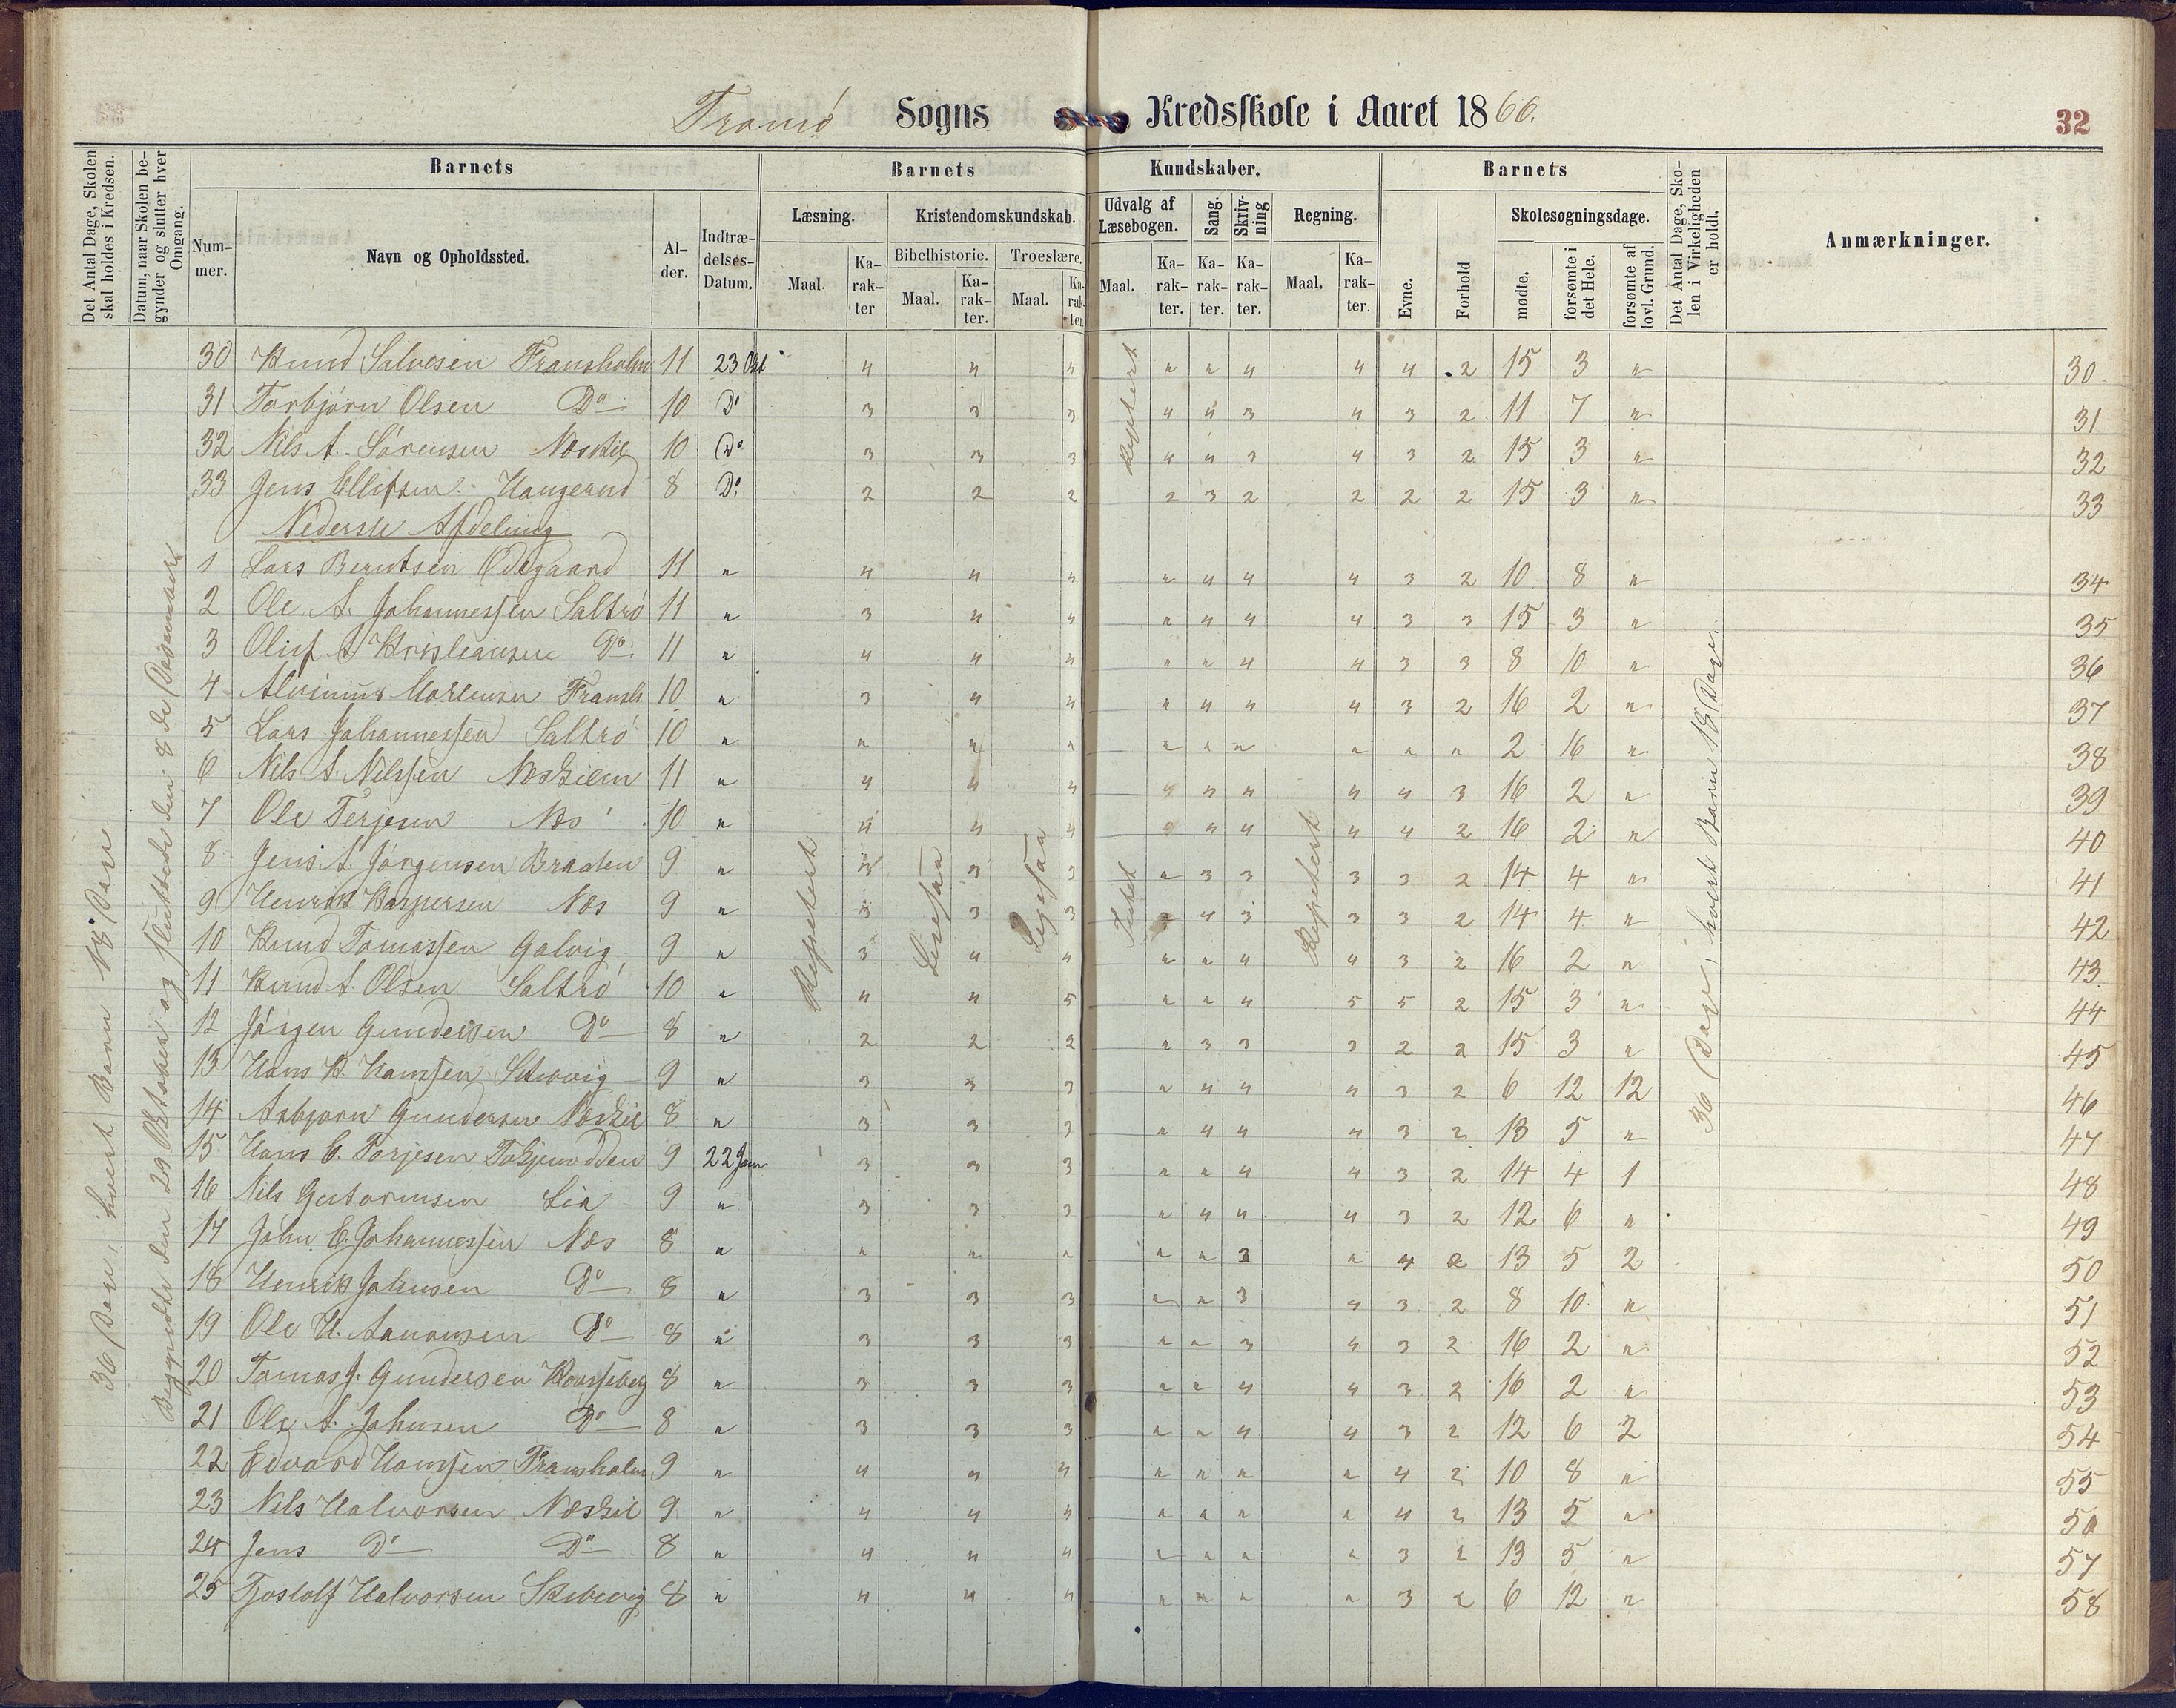 Tromö Sogns Kredsskole i Aaret 1866.
32
Det Antal Dage, Skolen skal holdes i Kredsen.
Datum, naar Skolen begynder og slutter hver Omgang.
Barnets
Nummer.
Navn og Opholdssted.
Alder.
Indtrædelses-Datum.
Barnets Kundskaber.
Læsning.
Maal.
Karakter
Kristendomskundskab.
Bibelhistorie.
Maal.
Karakter.
Troeslære.
Maal.
Karakter.
Udvalg af Læsebogen.
Maal.
Karakter.
Sang.
Karakter.
Skrivning
Karakter.
Regning.
Maal.
Karakter.
Barnets
Evne.
Forhold
Skolesøgningsdage.
mødte.
forsømte i det Hele.
forsømte af lovl. Grund.
Det Antal Dage, Skolen i Virkeligheden er holdt.
Anmærkninger.
36 Dage, hvert Barn 18 Dage.
Begyndte den 29 Oktober og sluttede den 8de Desember
Repetert
Lesesaa
Repetert
Repetert
36 Dage, hvert Barn 18 Dage.
30 Knud Salvesen Fransholm 11 23 Okt 4 4 4 " " 4 4 4 2 15 3 " 30
31 Torbjørn Olsen Do 10 Do 3 3 3 4 4 3 4 3 2 11 7 " 31
32 Nils A. Sørensen Næskil 10 Do 3 3 3 4 4 3 4 3 2 15 3 " 32
33 Jens Ellefsen Haugerud 8 Do 2 2 2 2 3 2 2 2 2 15 3 " 33
Nederste Afdeling
1 Lars Berntsen Ødegaard 11 " 4 4 4 " 4 4 4 3 2 10 8 " 34
2 Ole A. Johannessen Saltrö 11 " 3 4 4 " 4 4 4 3 3 15 3 " 35
3 Oluf A Kristiansen Do 11 " 4 4 4 " " 4 4 3 3 8 10 " 36
4 Alvinius Mortensen Fransh. 10 " 3 4 4 " 4 4 4 3 2 16 2 " 37
5 Lars Johannessen Saltrö 10 " " " " " " " " " " 2 16 " 38
6 Nils A. Nilssen Næskilen 11 " 4 4 4 4 4 4 4 4 3 16 2 " 39
7 Ole Terjesen Næs 10 " 4 4 4 4 4 4 4 2 16 2 " 40
8 Jens A. Jørgensen Braaten 9 " 3 3 3 " 3 3 3 3 2 14 4 " 41
9 Henrik Kaspersen Næs 9 " 3 3 3 4 3 3 3 2 14 4 " 42
10 Knud Tomassen Galvig 9 " 3 4 4 " " 4 4 3 2 16 2 " 43
11 Knud A. Olsen Saltrö 10 " 4 4 5 " " 4 5 5 2 15 3 " 44
12 Jørgen Gundersen Do 8 " 2 2 2 " 3 3 3 2 2 15 3 " 45
13 Hans K. Hanssen Skovvig 9 " 3 3 3 " 4 4 4 3 2 6 12 12 46
14 Asbjørn Gundersen Næskil 8 " 3 3 3 " 4 4 4 3 2 13 5 " 47
15 Hans E. Terjesen 9 22 Jan 3 3 3 " " 4 4 3 2 14 4 1 48
16 Nils Guttormsen Lia 9 " 3 3 3 " 4 4 4 3 2 12 6 " 49
17 John E. Johannessen Næs 8 " " " " " " 3 " 4 2 13 5 2 50
18 Henrik Johnsen Do 8 " 3 3 3 " " 3 4 3 2 8 10 " 51
19 Ole H. Aanonsen Do 8 " 3 3 3 " " 3 4 3 2 16 2 " 52
20 Tomas J. Gundersen 8 " 3 3 3 " " 4 4 3 2 16 2 " 53
21 Ole A. Johnsen Do 8 " 3 3 3 " " 4 4 3 2 12 6 2 54
22 Edvard Hanssen Fransholm 9 " 4 4 4 " " " " 4 2 10 8 " 55
23 Nils Halvorsen Næskil 9 " 4 4 4 " " " " 4 2 13 5 " 56
24 Jens Do Do 8 " 4 4 4 " " " " 3 2 13 5 " 57
25 Tjostolf Halvorsen 8 " 4 4 4 " " " " 3 2 6 12 " 58